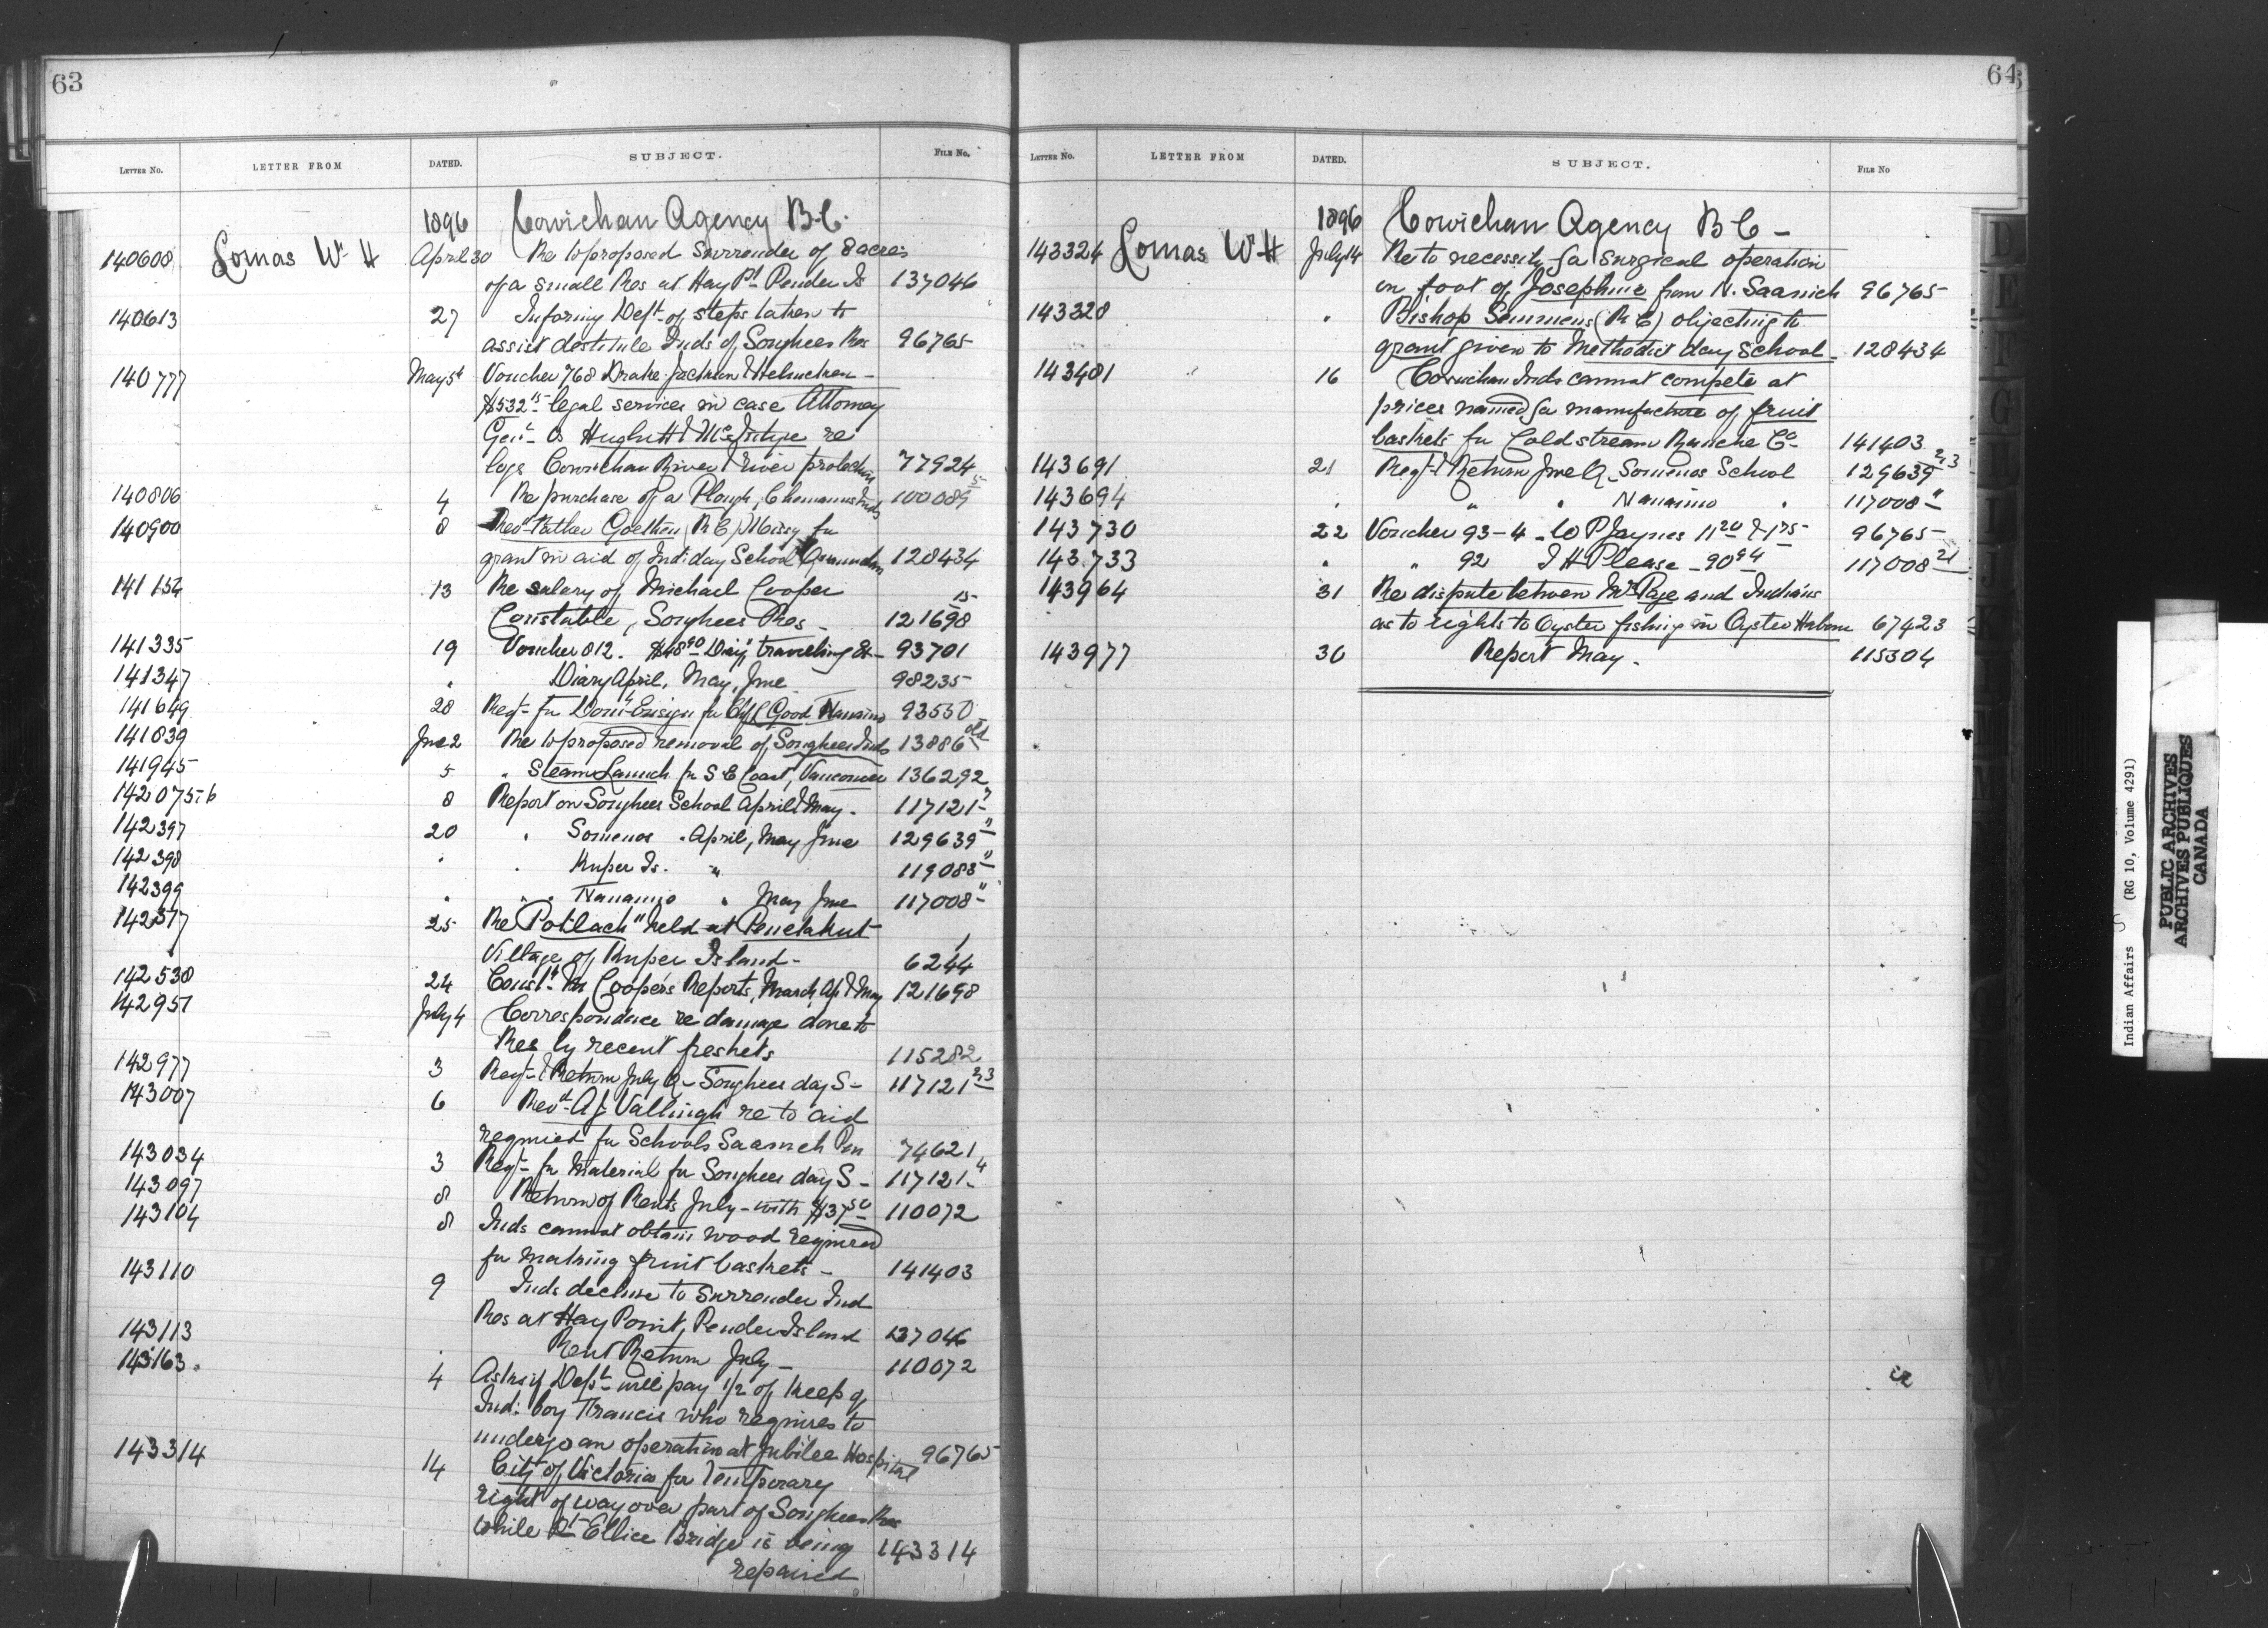 63
LETTER NO. LETTER FROM DATED. SUBJECT. FILE No.
1896 Cowichan Agency B.C.
140608 Lomas W. H April 30 Re to proposed Surrender of 8 acres
of a small Res at Hay Pt Pender Is 137046
140613 27 Informing Dept. of steps taken to
assist destitute Inds of Songhees Res 96765
140777 May 5t Voucher 768 Drake Jackson & Helmcken -
$532 15 legal services in case Attorney
Genl. vs Hughitt & McIntyre re
logs Cowichan River & river protection 77924
140806 4 Re purchase of a Plough, Chemainus Inds 100089 5
140900 8 Revd Father (R C) Missy for
grant in aid of Ind: day School 128434
141154 13 Re salary of Michael Cooper
Constable, Songhees Res - 121698 15
141335 19 Voucher 812. $48 90 travelling Ex- 93701
141347 " Diary April, May, June 98235
141649 28 Reqt. for Domn Ensign for Chf L Good Nanaimo 93550
141839 June 2 Re to proposed removal of Songhees Inds 13886 old
141945 5 " Steam Launch for S E Coast, Vancouver 136292
142075-6 8 Report on Songhees School April & May. 117121-2
142397 20 " Somenos " April, May June 129639 "
142398 " " Kuper Is. " 119083 "
142399 " " " Nanaimo " May June 117008 "
142517 25 Re "Potlach" held at Penelakut
Village of Kuper Island - 6244 1
142538 24 Const. M Cooper's Reports, March, Ap & May 121698
142951 July 4 Correspondence re damage done to
Res by recent freshets 115282
142977 3 Reqt. & Return July Q - Songhees day S - 117121 2,3
143007 6 Revd. A J Vullinghs re to aid
required for Schools Saanich Pen 74621
143034 3 Reqt. for Material for Songhees day S - 117121 4
143097 8 Return of Rents July - with $37 50 110072
143104 8 Inds cannot obtain wood required
for making fruit baskets - 141403
143110 9 Inds decline to Surrender Ind
Res at Hay Point, Pender Island 137046
143113 " Rent Return July - 110072
143163 4 Asks if Dept. will pay 1/2 of keep of
Ind: boy Francis who requires to
undergo an operation at Jubilee Hospital 96765
143314 14 City of Victoria for temporary
right of way over part of Songhees Res
while Pt Ellice Bridge is being 143314
repaired
64
LETTER NO. LETTER FROM DATED. SUBJECT. FILE NO
1896 Cowichan Agency B C -
143324 Lomas W. H July 14 Re to necessity for Surgical operation
on foot of Josephine from N. Saanich 96765
143328 " Bishop Lemmens (R C) objecting to
grant given to Methodist day School - 128434
143481 16 Cowichan Inds cannot compete at
prices named for manufacture of fruit
baskets for Coldstream Ranche Co 141403
143691 21 Reqt. & Return June Q - Somenos School 129639 2,3
143694 " " " Nanaimo " 117008 "
143730 22 Voucher 93-4 - W P Jaynes 11 20 & 1 75 96765
143733 " " 92 J H Please - 90 94 117008 21
143964 31 Re dispute between Mr Page and Indians
as to rights to Oyster fishing in Oyster Harbour 67423
143977 30 Report May. 115304
D
E
F
G
Indian Affairs (RG 10, Volume 4291)
PUBLIC ARCHIVES
ARCHIVES PUBLIQUES
CANADA